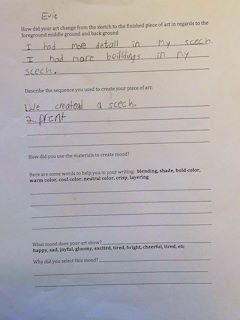 Evie
How did your art change from the sketch to the finished piece of art in regards to the
foreground middle ground and back ground
I had more detail in my scech
I had more buildings in my
scech.
Describe the sequence you used to create your piece of art:
1. We created a scech.
2. print
How did you use the materials to create mood?
Here are some words to help you in your writing: blending, shade, bold color,
warm color, cool color, neutral color, crisp, layering
What mood does your art show?
happy, sad, joyful, gloomy, excited, tired, bright, cheerful, tired, etc
Why did you select this mood?